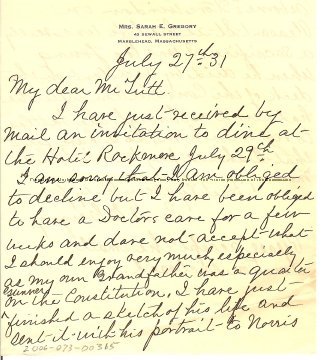 MRS. SARAH E. GREGORY
43 SEWALL STREET
MARBLEHEAD, MASSACHUSETTS
July 27th 31
My dear Mr Tutt.
I have just received by
mail an invitation to dine at
the Hotel Rockmere July 29th
I am sorry that I am obliged
to decline but I have been obliged
to have a Doctors care for a few
weeks and dare not accept what
I should enjoy very much especisely
as my own Grandfather was a quarter
gunner
on the Constitution, I have just
finished a sketch of his life and
sent it with his portrait to Norris
2006-073-00365